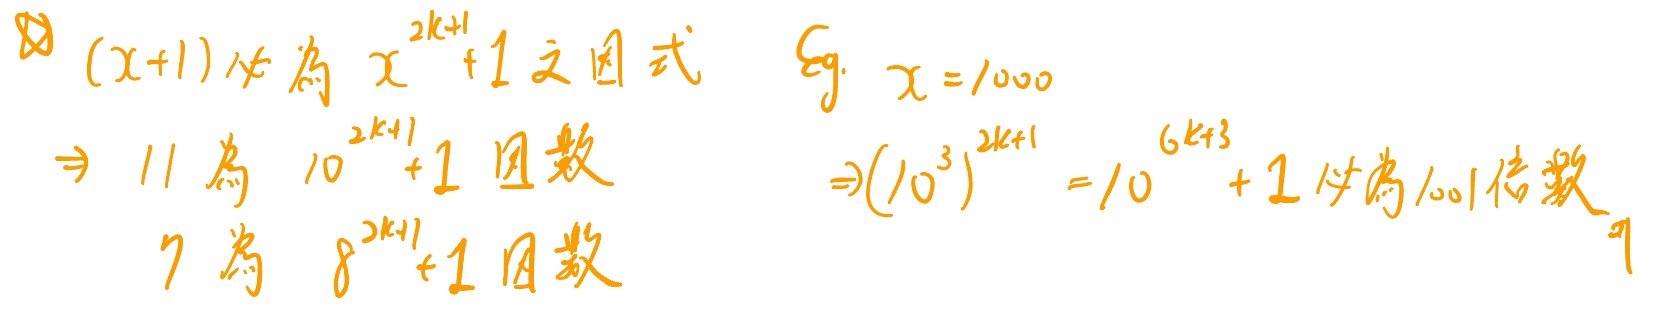 (x+1)必為 x^{2k+1}+1 之因式
⇒ 11 為 10^{2k+1}+1 因數
7 為 8^{2k+1}+1 因數
Eg. x=1000
⇒(10^3)^{2k+1} = 10^{6k+3}+1 必為1001倍數